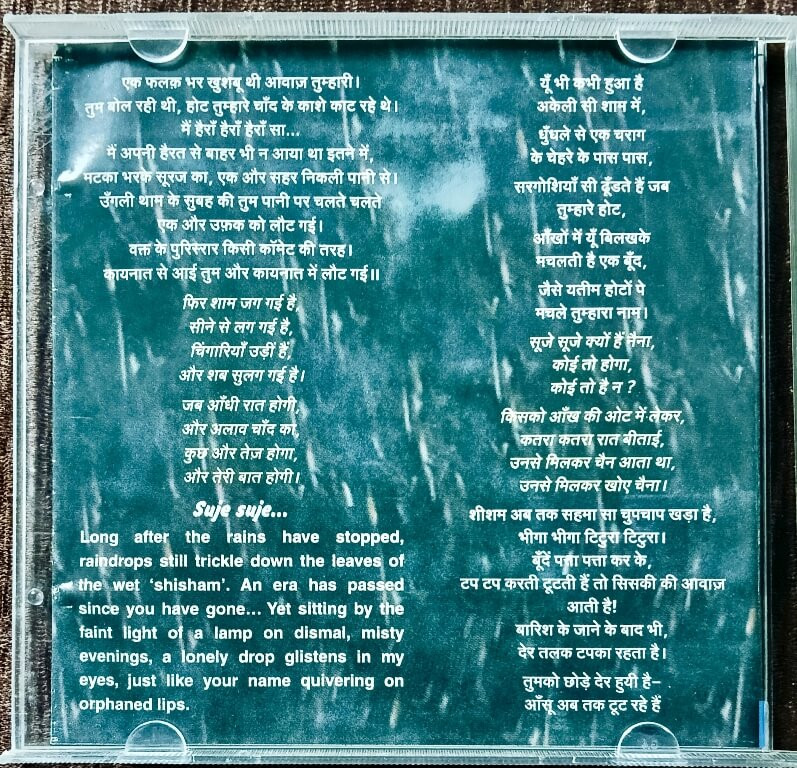 एक फलक़ भर खुशबू थी आवाज़ तुम्हारी।
तुम बोल रही थी, होट तुम्हारे चाँद के काशे काट रहे थे।
मैं हैराँ हैराँ हैराँ सा...
में अपनी हैरत से बाहर भी न आया था इतने में,
मटका भरके सूरज का, एक और सहर निकली पानी से।
उँगली थाम के सुबह की तुम पानी पर चलते चलते
एक और उफ़क को लौट गई।
वक्त के पुरिस्रार किसी कॉमेट की तरह।
कायनात से आई तुम और कायनात में लौट गई॥
फिर शाम जग गई है,
सीने से लग गई है,
चिंगारियाँ उड़ीं हैं,
और शब सुलग गई है।
जब आँधी रात होगी,
और अलाव चाँद का,
कुछ और तेज़ होगा,
और तेरी बात होगी।
Suje suje...
Long after the rains have stopped,
raindrops still trickle down the leaves of
the wet 'shisham'. An era has passed
since you have gone... Yet sitting by the
faint light of a lamp on dismal, misty
evenings, a lonely drop glistens in my
eyes, just like your name quivering on
orphaned lips.
यूँ भी कभी हुआ है
अकेली सी शाम में,
धुँधले से एक चराग
के चेहरे के पास पास,
सरगोशियाँ सी ढूँडते हैं जब
तुम्हारे होट,
आँखों में यूँ बिलखके
मचलती है एक बूँद,
जैसे यतीम होटों पे
मचले तुम्हारा नाम।
सूजे सूजे क्यों हैं नैना,
कोई तो होगा,
कोई तो है न ?
किसको आँख की ओट में लेकर,
कतरा कतरा रात बीताई,
उनसे मिलकर चैन आता था,
उनसे मिलकर खोए चैना।
शीशम अब तक सहमा सा चुपचाप खड़ा है,
भीगा भीगा टिटुरा टिटुरा।
बूँदें पत्ता पत्ता कर के,
टप टप करती टूटती हैं तो सिसकी की आवाज़
आती है!
बारिश के जाने के बाद भी,
देर तलक टपका रहता है।
तुमको छोड़े देर हुयी है–
आँसू अब तक टूट रहे हैं